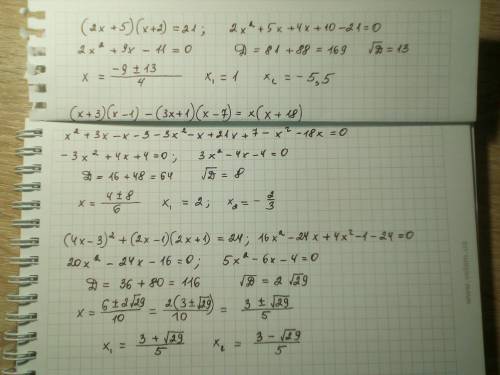 (2x+5)(x+2)=21; 2x²+5x+4x+10-21=0
2x²+9x-11=0 D=81+88=169 √D=13
x=(-9±13)/4 x₁=1 x₂=-5,5
(x+3)(x-1)-(3x+1)(x-7)=x(x+18)
x²+3x-x-3-3x²-x+21x+7-x²-18x=0
-3x²+4x+4=0; 3x²-4x-4=0
D=16+48=64 √D=8
x=(4±8)/6 x₁=2; x₂=-2/3
(4x-3)²+(2x-1)(2x+1)=24; 16x²-24x+4x²-1-24=0
20x²-24x-16=0; 5x²-6x-4=0
D=36+80=116 √D=2√29
x=(6±2√29)/10=2(3±√29)/10=(3±√29)/5
x₁=(3+√29)/5 x₂=(3-√29)/5